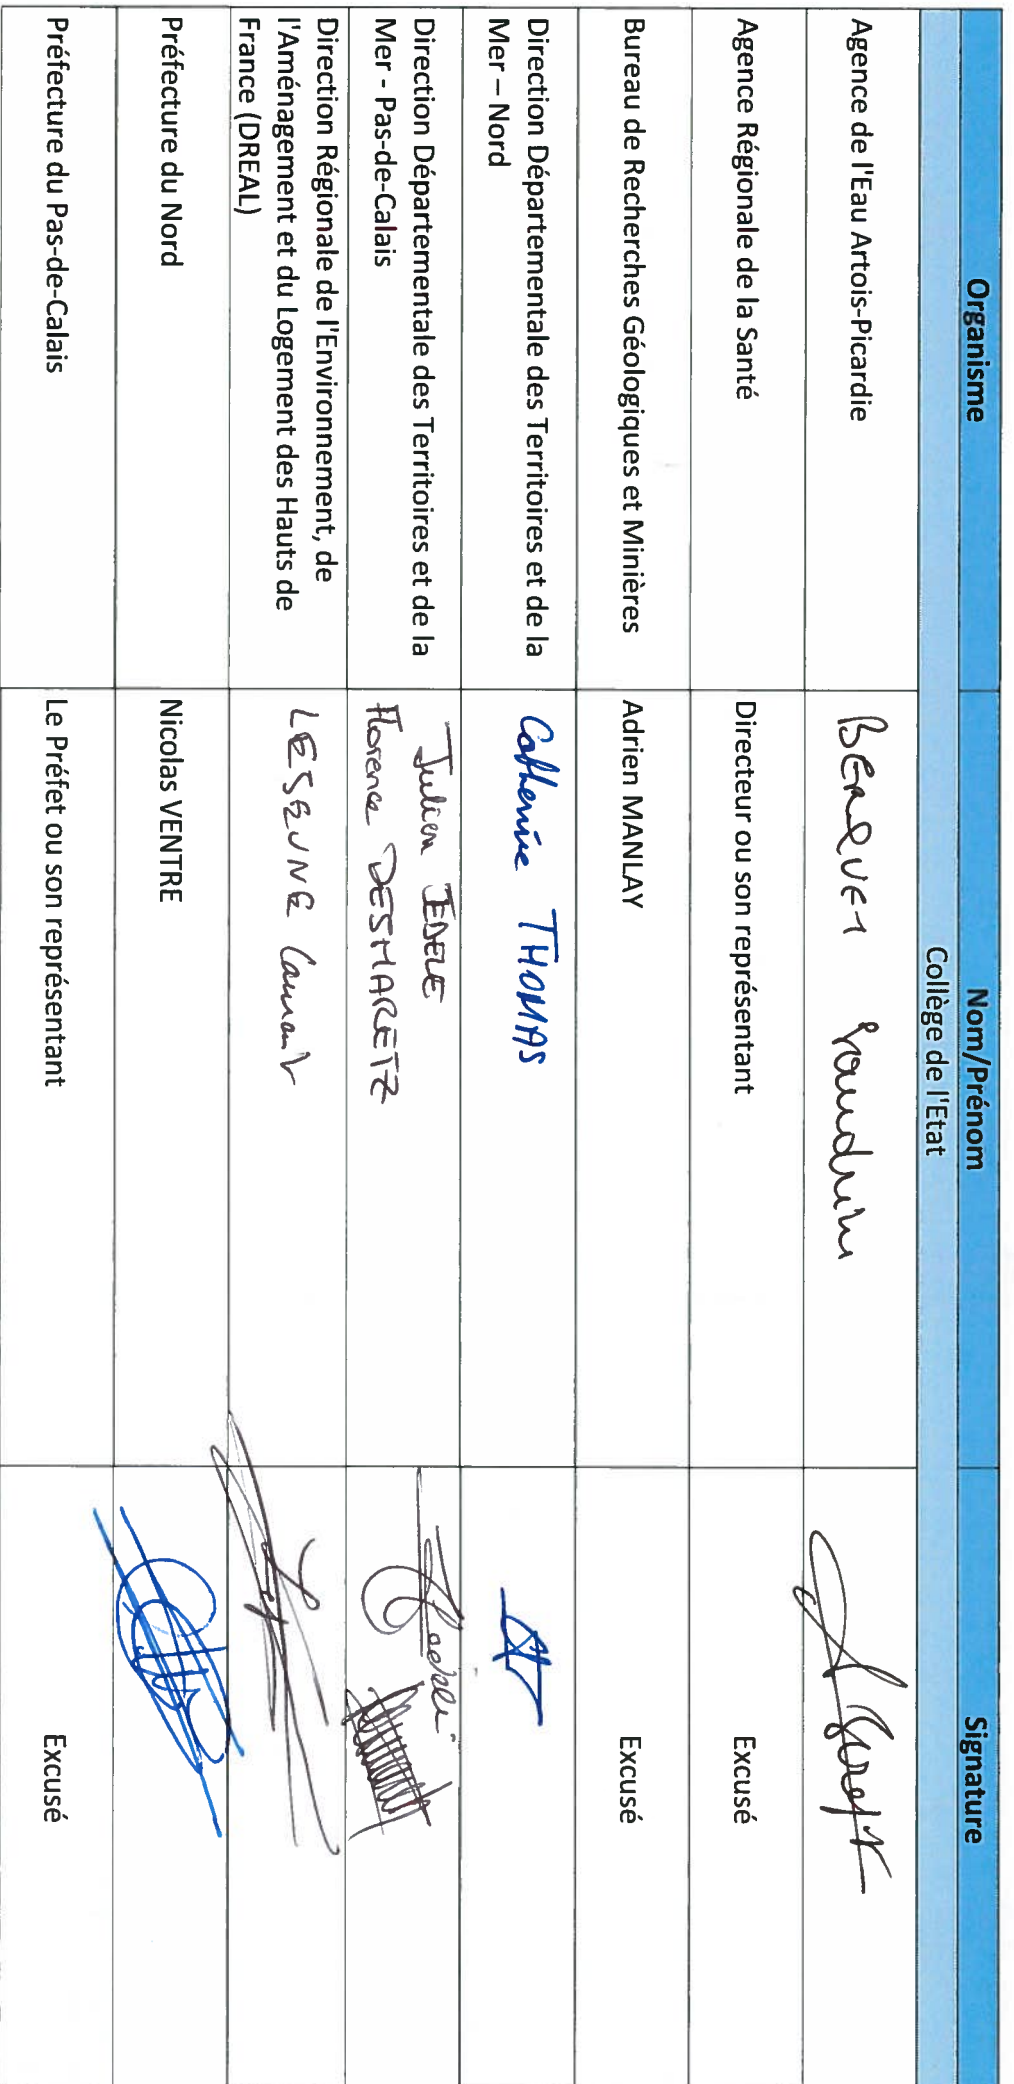 Organisme Nom/Prénom Signature
Collège de l'Etat
Agence de l'Eau Artois-Picardie BERQUET
Agence Régionale de la Santé Directeur ou son représentant Excusé
Bureau de Recherches Géologiques et Minières Adrien MANLAY Excusé
Direction Départementale des Territoires et de la
Mer – Nord
Catherine THOMAS
Direction Départementale des Territoires et de la
Mer - Pas-de-Calais
Julien JEDELE
Florence DESMARETZ
Direction Régionale de l'Environnement, de
l'Aménagement et du Logement des Hauts de
France (DREAL)
Préfecture du Nord Nicolas VENTRE
Préfecture du Pas-de-Calais Le Préfet ou son représentant Excusé